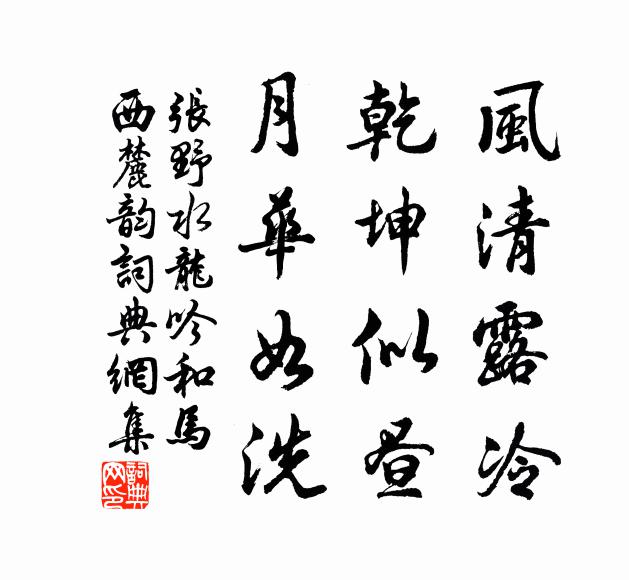 風清露冷
乾坤似昼
月華如洗
張野水龍吟和馬
西麓韵詞典網集
詞典
网印